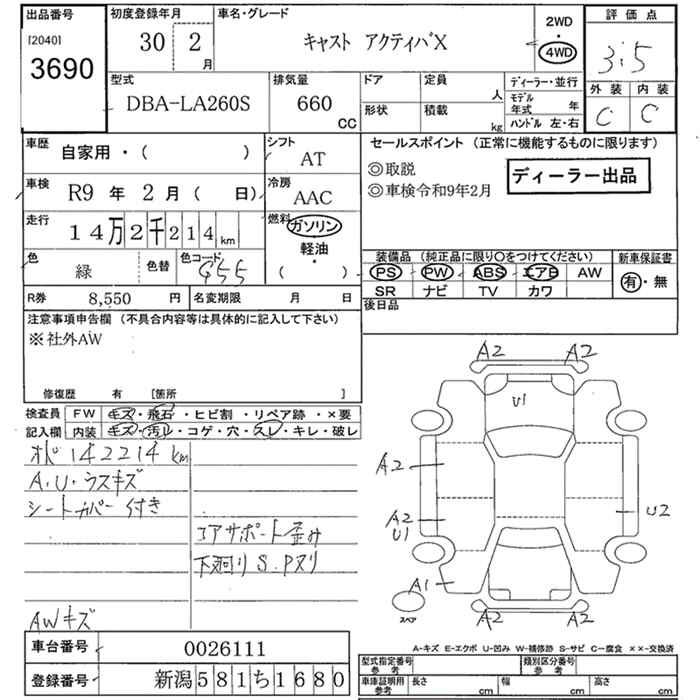 出品番号
[2040]
3690
初度登録年月
30 2
月
車名・グレード
キャスト アクティバX
2WD
・
4WD
評価点
3.5
外装 内装
C C
型式
DBA-LA260S
排気量
660
CC
ドア 定員
人
形状 積載
kg
ディーラー・並行
モデル
年式 年
ハンドル 左・右
車歴
自家用・( )
シフト
AT
車検
R9 年 2 月 ( 日)
冷房
AAC
走行
14万2千214km
燃料
ガソリン
軽油・
( )
色
緑
色替
色コード
G55
R券 8,550 円
名変期限 月 日
セールスポイント (正常に機能するものに限ります)
◎取説
◎車検令和9年2月
ディーラー出品
装備品 (純正品に限り○をつけてください)
PS PW ABS エアB AW
SR ナビ TV カワ
新車保証書
有・無
後日品
注意事項申告欄 (不具合内容等は具体的に記入して下さい)
※社外AW
修復歴 有 [箇所 ]
検査員
記入欄
FW キズ・飛石・ヒビ割・リペア跡・×要
内装 キズ・汚レ・コゲ・穴・スレ・キレ・破レ
オド 142214 km
A.U・ウスキズ
シートカバー付き
コアサポート歪み
下廻り S.Pヌリ
AWキズ
車台番号 0026111
登録番号 新潟581ち1680
A2 A2
U1
A2
A2
U1
U2
A1
スペア
A2 A2
A-キズ E-エクボ U-凹み W-補修跡 S-サビ C-腐食 ××-交換済
型式指定番号
参考
類別区分番号
参考
車庫証明用
参考
長さ cm 幅 cm 高さ cm